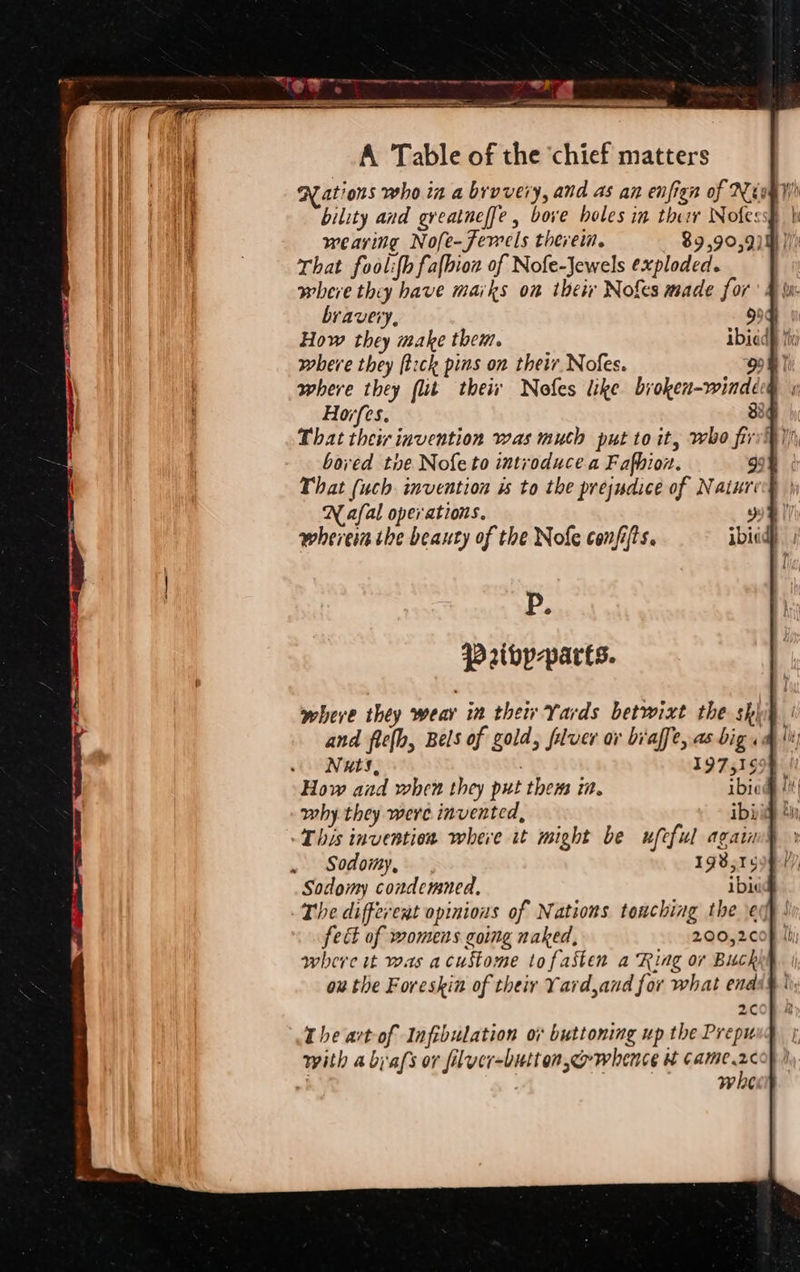 A Table of the chief matters
Nations who in a bravery, and as an ensign of
bility and greatnesse, bore holes in their Noses
wearing Nose-Jewels therein. 89,90,91
That foolish fashion of Nose-Jewels exploded.
where they have marks on their Noses made for
bravery,
How they make them. ibid
where they stick pins on their Noses. 99
where they slit their Noses like broken-winded
Horses. 88
That their invention was much put to it, who first
bored the Nose to introduce a Fashion. 99
That such invention is to the prejudice of Natures
Nasal operations. 99
wherein the beauty of the Nose consists. ibid
P.
Privy-parts.
where they wear in their Yards betwixt the skin
and flesh, Bels of gold, silver or brasse, as big as
Nuts, 197,159
How and when they put them in. ibid
why they were invented, ibid
This invention where it might be useful against
Sodomy, 198,159
Sodomy condemned. ibid
The different opinions of Nations touching the ef
fect of womens going naked, 200,200
where it was a custome to fasten a Ring or Buckle
on the Foreskin of their Yard, and for what ends
200
The art of Infibulation or buttoning up the Prepuce
with a brass or silver-button, & whence it came. 200
where